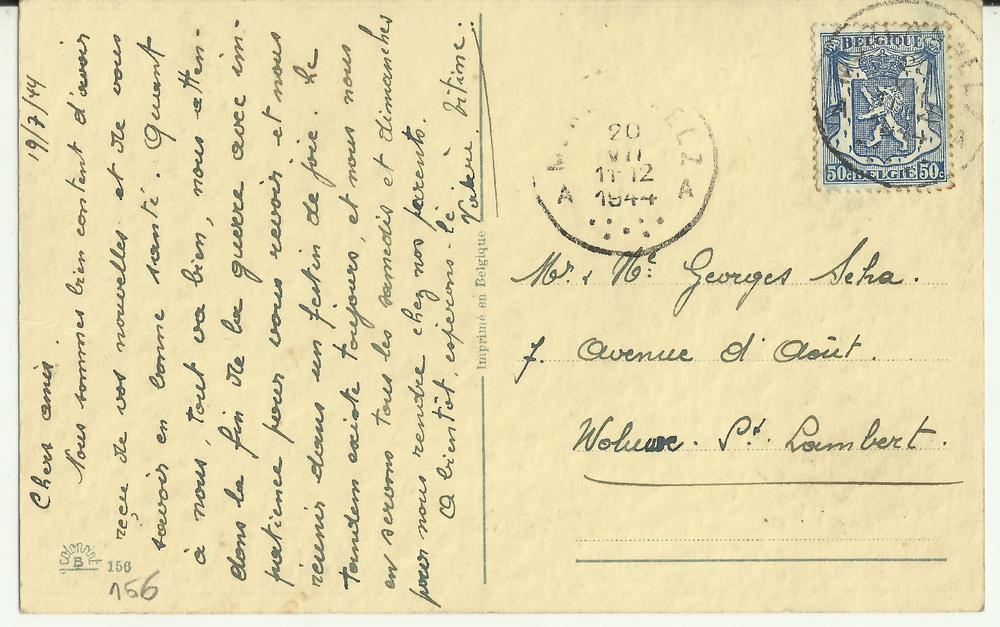 19/7/44
Chers amis.
Nous sommes bien content d'avoir
reçue de vos nouvelles et de vous
savoir en bonne santé. Quant
à nous, tout va bien, nous atten-
dons la fin de la guerre avec im-
patience pour vous revoir et nous
réunir dans un festin de joie. Le
tandem existe toujours, et nous nous
en servons tous les samedis et dimanches
pour nous rendre chez nos parents.
A bientôt, espérons-le
Valère
colorprint
B
156
156
Imprimé en Belgique
20
VII
11-12
1944
A A
BELGIQUE
50c BELGIË 50c
Mr. & Me. Georges Scha.
7. Avenue d'Août.
Woluwe. St. Lambert.